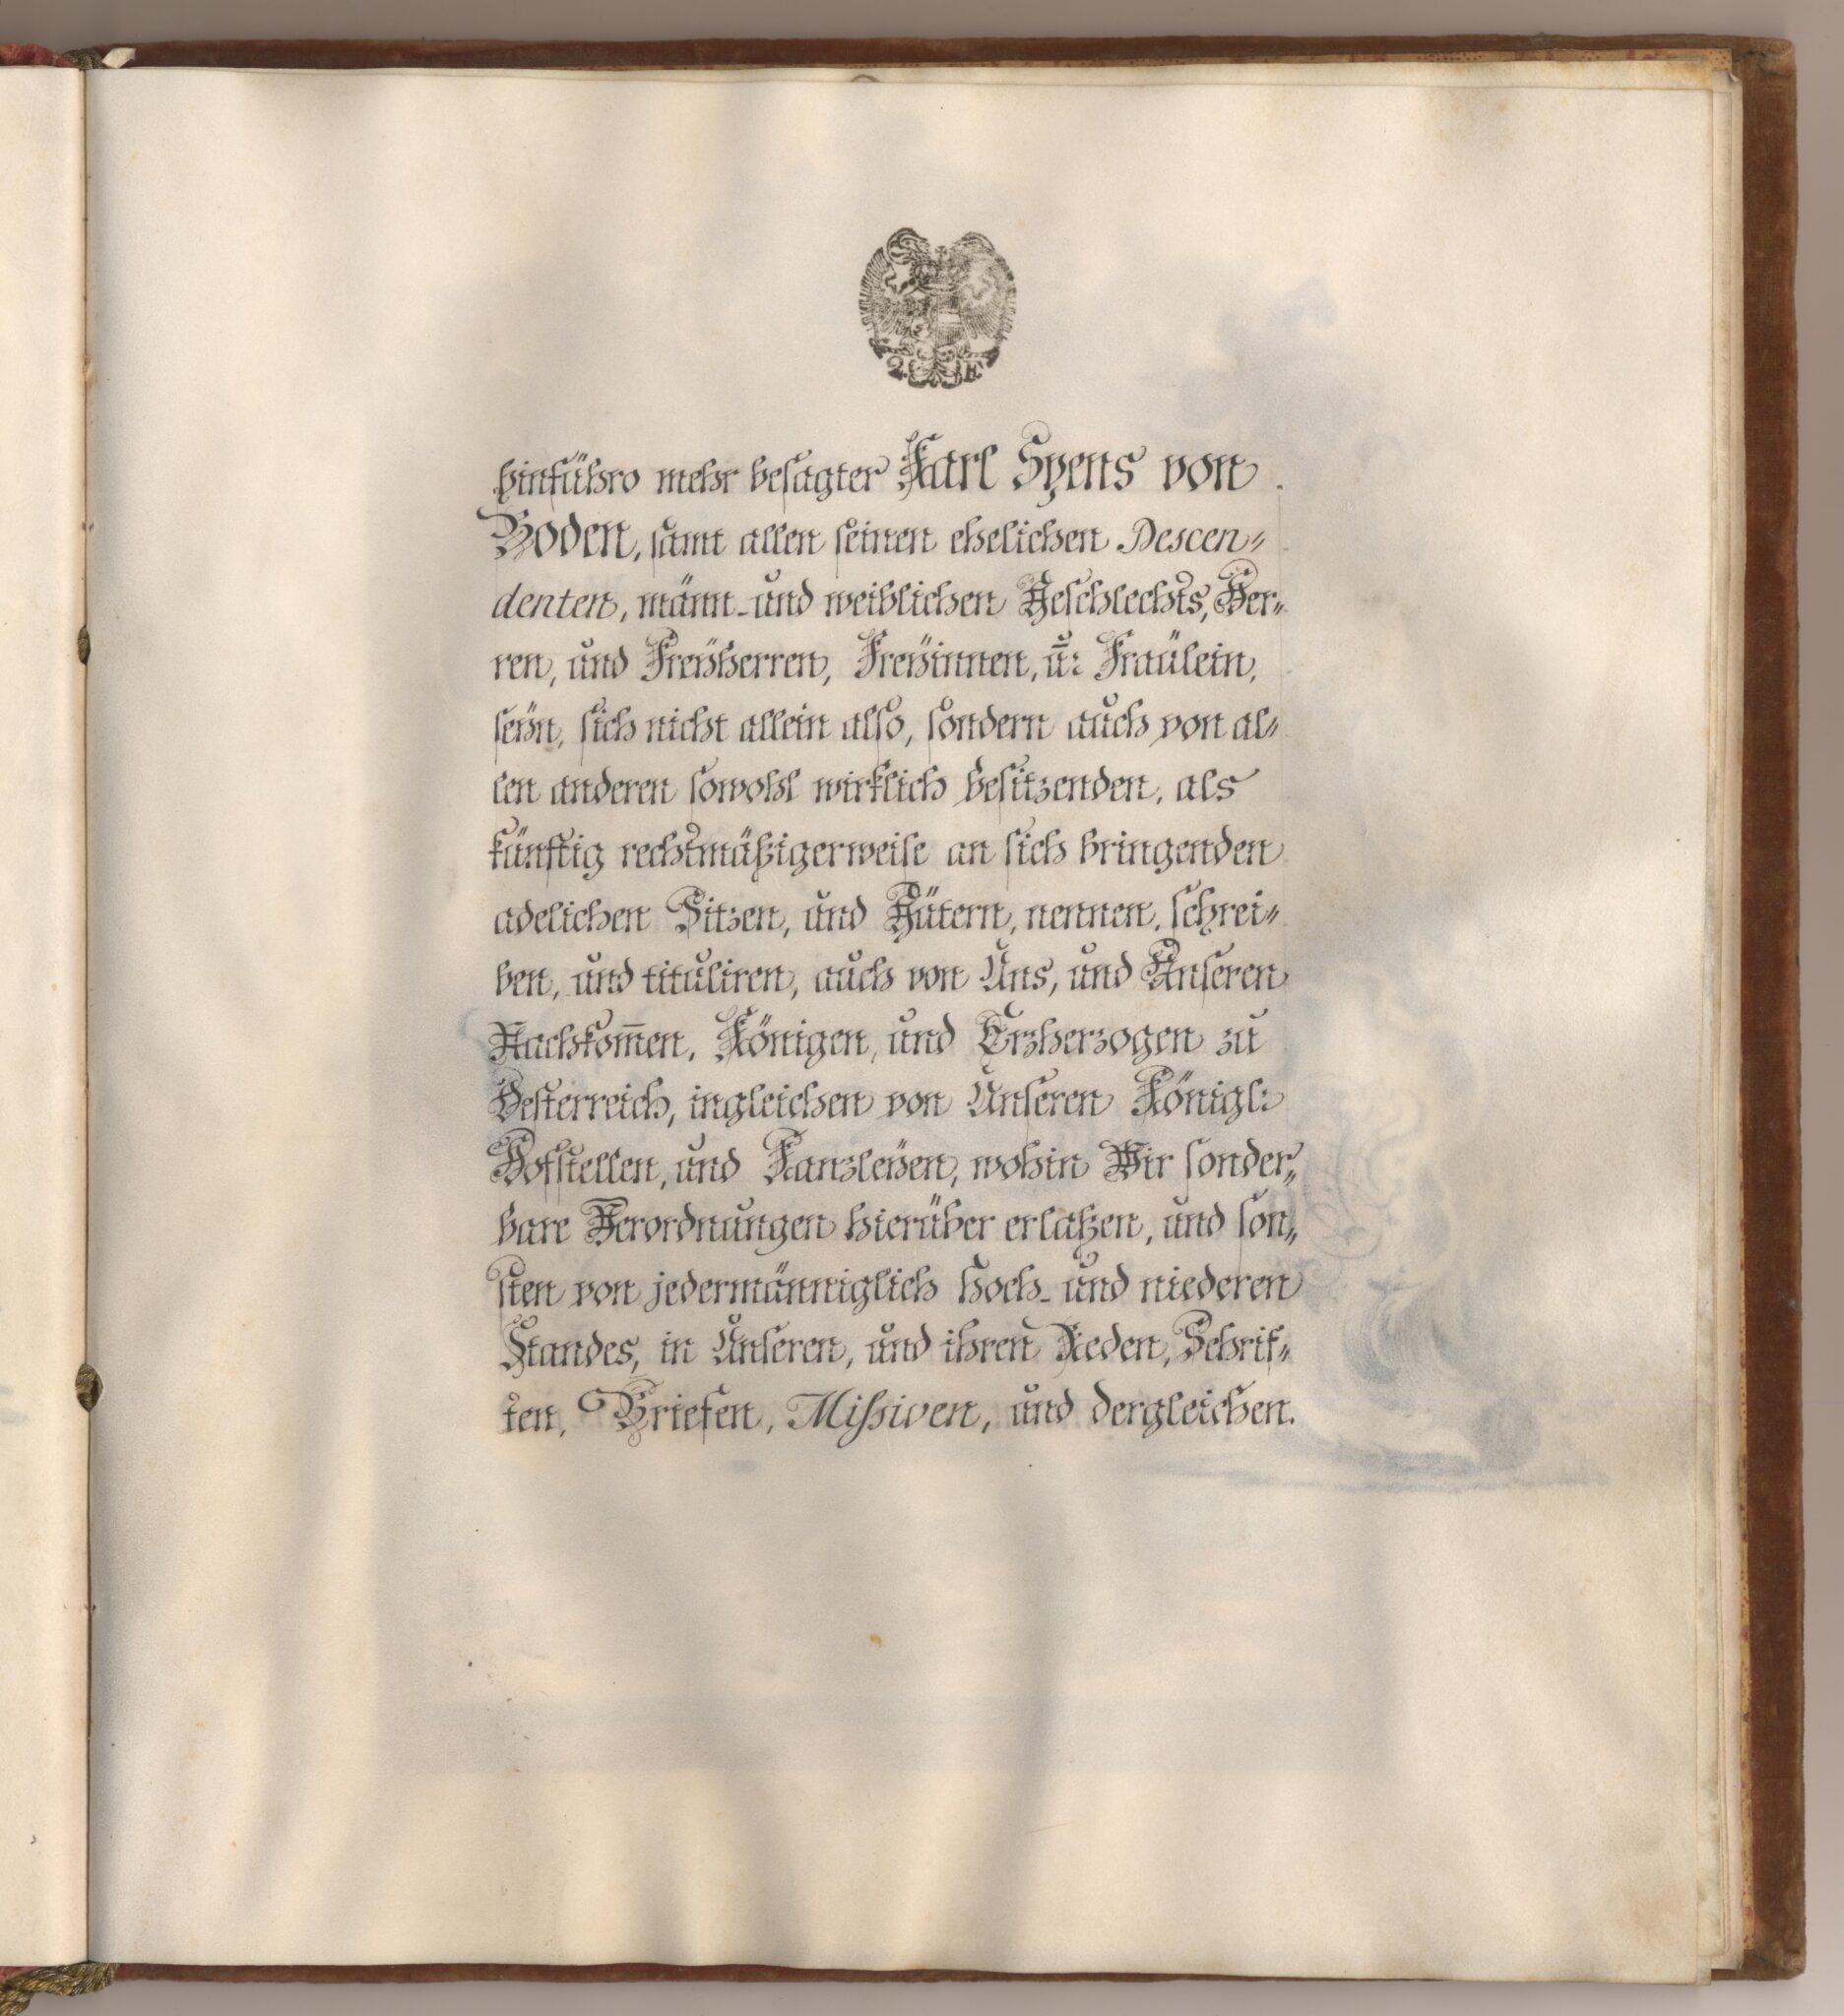 2. F.
hinführo mehr besagter Karl Spens von
Boden, samt allen seinen ehelichen Descen„
denten, männ- und weiblichen Geschlechts, Her„
ren, und Freÿherren, Freÿinnen, ū: Fraülein,
seÿn, sich nicht allein also, sondern auch von al„
len anderen sowohl wirklich besitzenden, als
künftig rechtmäßigerweise an sich bringenden
adelichen Sitzen, und Gütern, nennen, schrei„
ben, und tituliren, auch von Uns, und Unseren
Nachkom̅en, Königen, und Erzherzogen zu
Oesterreich, ingleichen von Unseren Königl:
Hofstellen, und Kanzleÿen, wohin Wir sonder„
bare Verordnungen hierüber erlaßen, und son„
sten von jedermänniglich hoch- und niederen
Standes, in Unseren, und ihren Reden, Schrif„
ten, Briefen, Mißiven, und dergleichen.